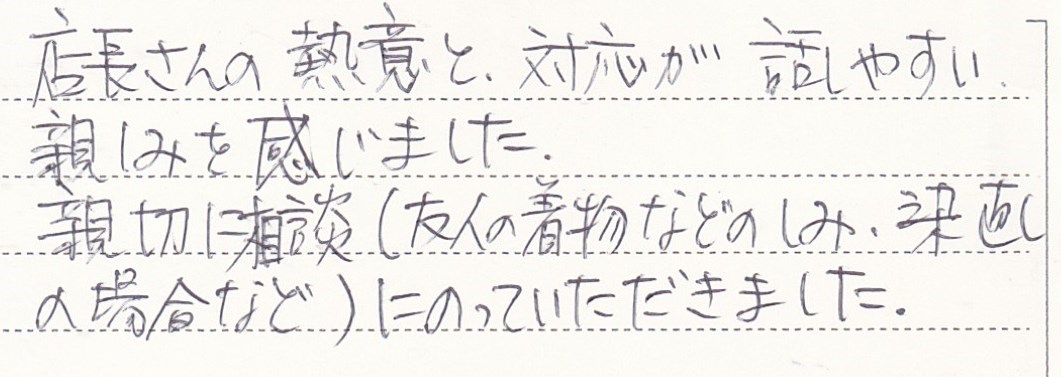 店長さんの熱意と、対応が話しやすい、
親しみを感じました。
親切に相談(友人の着物などのしみ、染直し
の場合など)にのっていただきました。